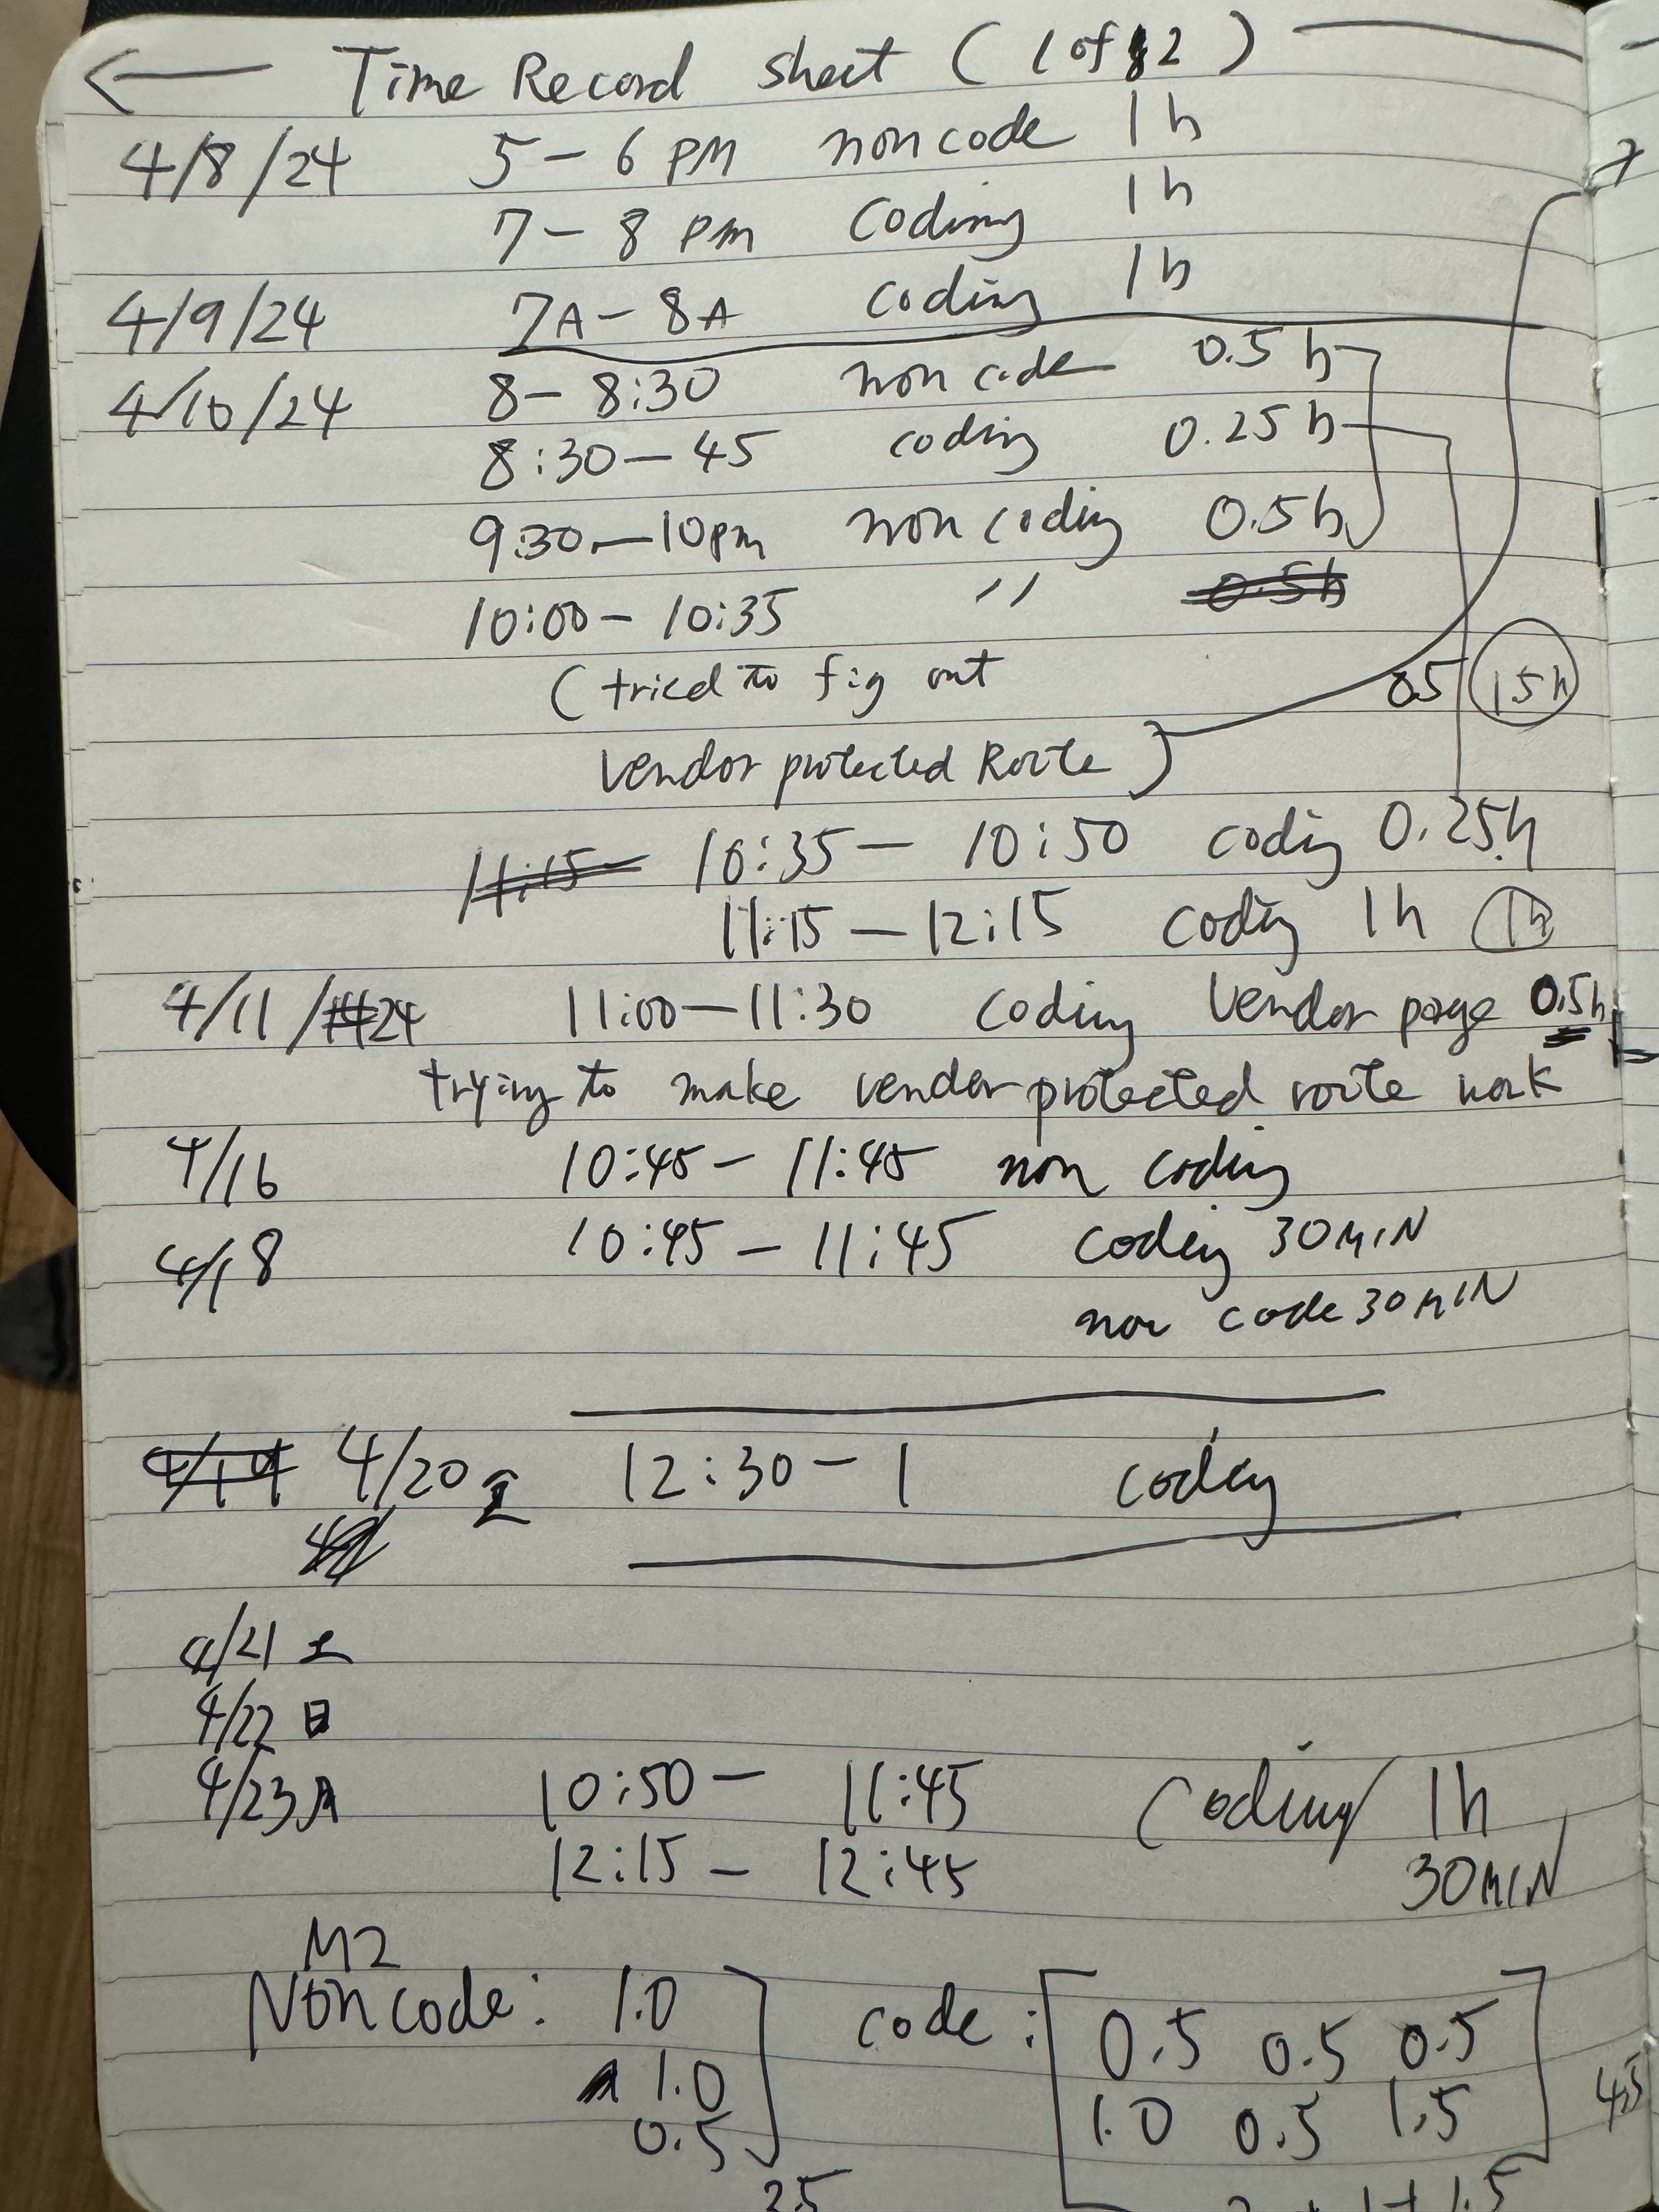 ← Time Record sheet (1 of 2)
4/8/24 5 – 6 PM non code 1h
7 – 8 pm coding 1h
4/9/24 7A – 8A coding 1h
4/10/24 8 – 8:30 non code 0.5h
8:30 – 45 coding 0.25h
9:30 – 10pm non coding 0.5h
10:00 – 10:35 〃 0.5h
(tried to fig out 0.5 1.5h
vendor protected Route)
11:15 – 10:35 – 10:50 coding 0.25h
11:15 – 12:15 coding 1h 1h
4/11/24 11:00 – 11:30 coding Vendor page 0.5h
trying to make vendor protected route work
4/16 10:45 – 11:45 non coding
4/18 10:45 – 11:45 coding 30MIN
non code 30MIN
4/19 4/20 12:30 – 1 coding
4/21 土
4/22 日
4/23 月 10:50 – 11:45 coding 1h
12:15 – 12:45 30MIN
M2
Non code: 1.0 code: 0.5 0.5 0.5
1.0 1.0 0.5 1.5 4.5
0.5